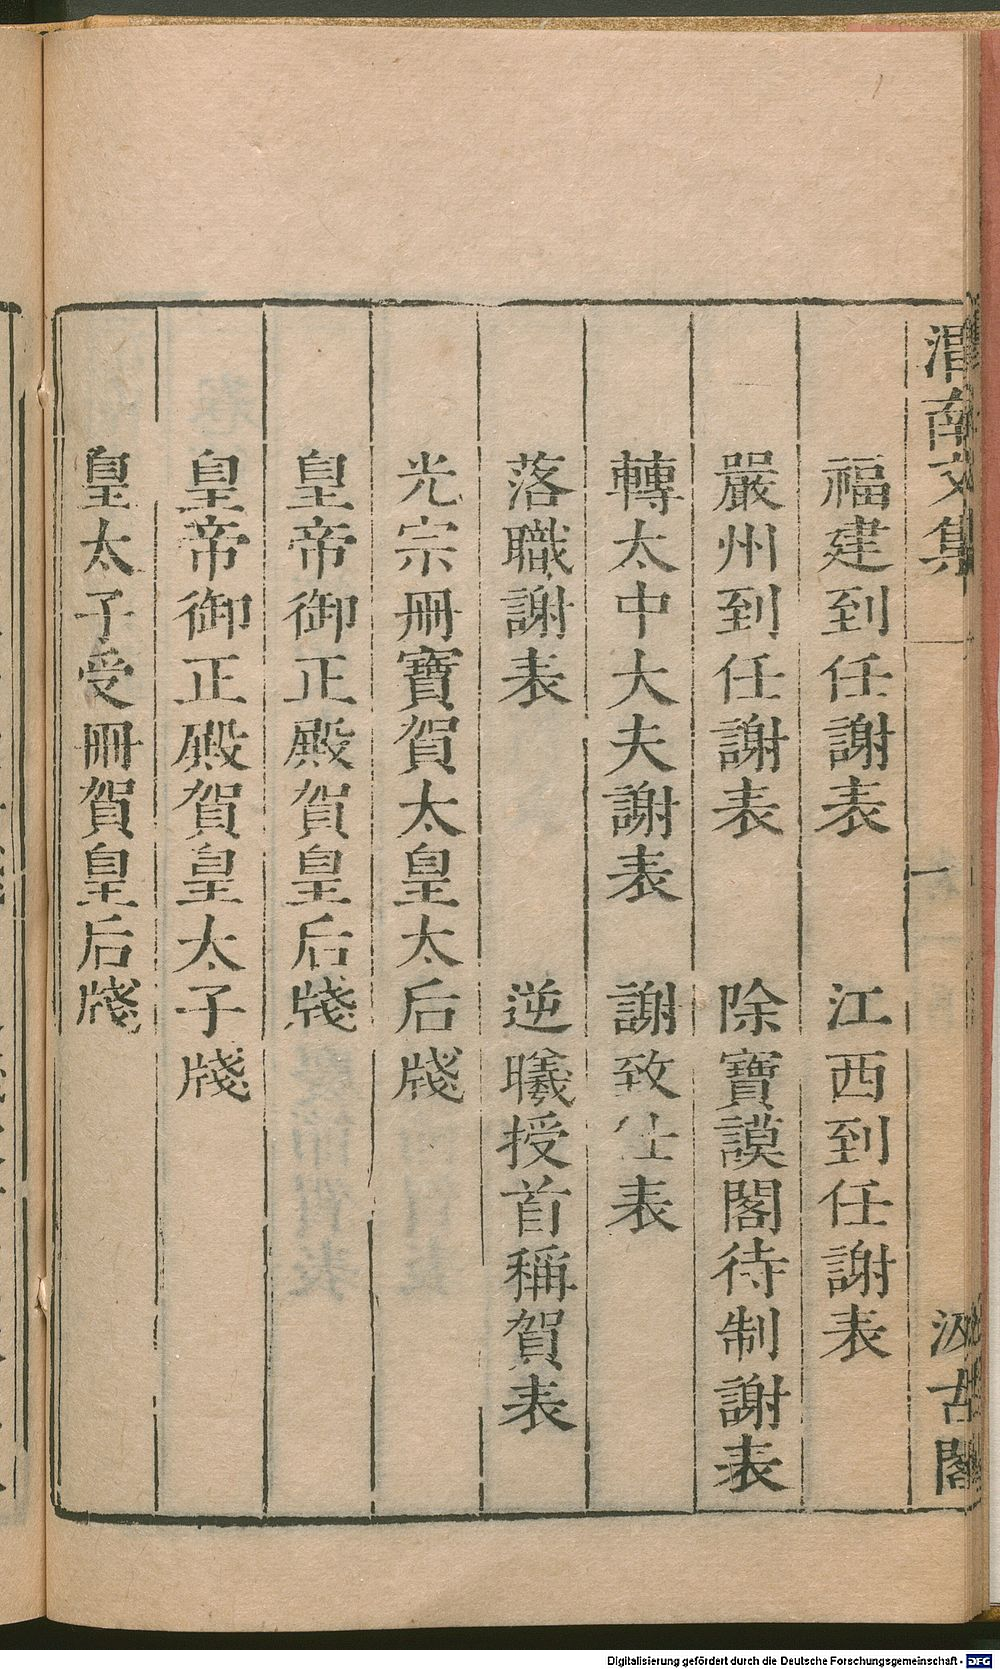 渭南文集 一 汲古閣
福建到任謝表 江西到任謝表
嚴州到任謝表 除寶謨閣待制謝表
轉太中大夫謝表 謝致仕表
落職謝表 逆曦授首稱賀表
光宗冊寶賀太皇太后牋
皇帝御正殿賀皇后牋
皇帝御正殿賀皇太子牋
皇太子受冊賀皇后牋
Digitalisierung gefördert durch die Deutsche Forschungsgemeinschaft - DFG